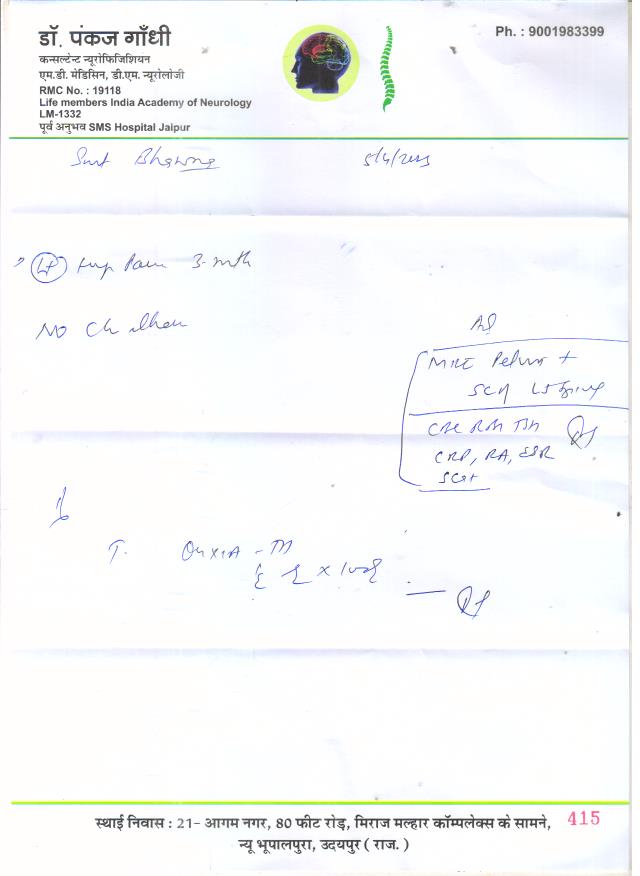 डॉ. पंकज गाँधी
कन्सल्टेन्ट न्यूरोफिजिशियन
एम.डी. मेडिसिन, डी.एम. न्यूरोलोजी
RMC No. : 19118
Life members India Academy of Neurology
LM-1332
पूर्व अनुभव SMS Hospital Jaipur
Ph. : 9001983399
Smt Bhawna
Lt Hip Pain 3 mth
No Children
Ad
MRI Pelvis +
CBC TSH
CRP, RA, ESR
T.
स्थाई निवास : 21- आगम नगर, 80 फीट रोड़, मिराज मल्हार कॉम्पलेक्स के सामने,
न्यू भूपालपुरा, उदयपुर ( राज. )
415